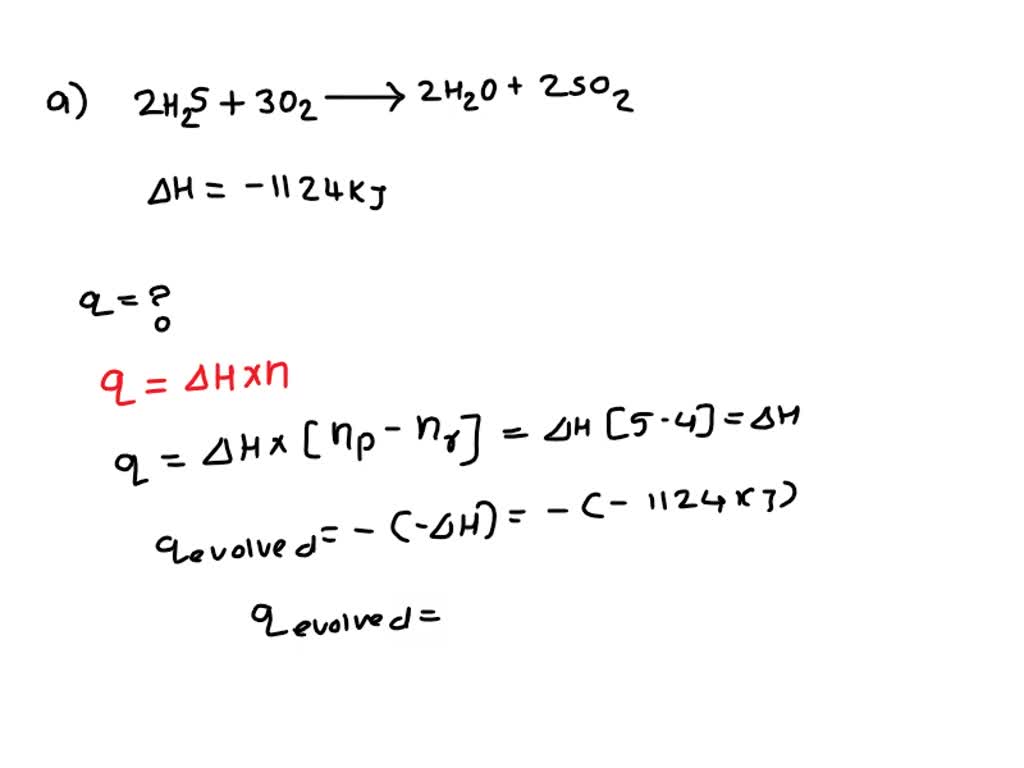 a) 2H₂S + 3O₂ ⟶ 2H₂O + 2SO₂
ΔH = -1124KJ
q = ?
q = ΔH×n
q = ΔH × [np - nr] = ΔH [5-4] = ΔH
qevolved = - (-ΔH) = - (- 1124KJ)
qevolved =